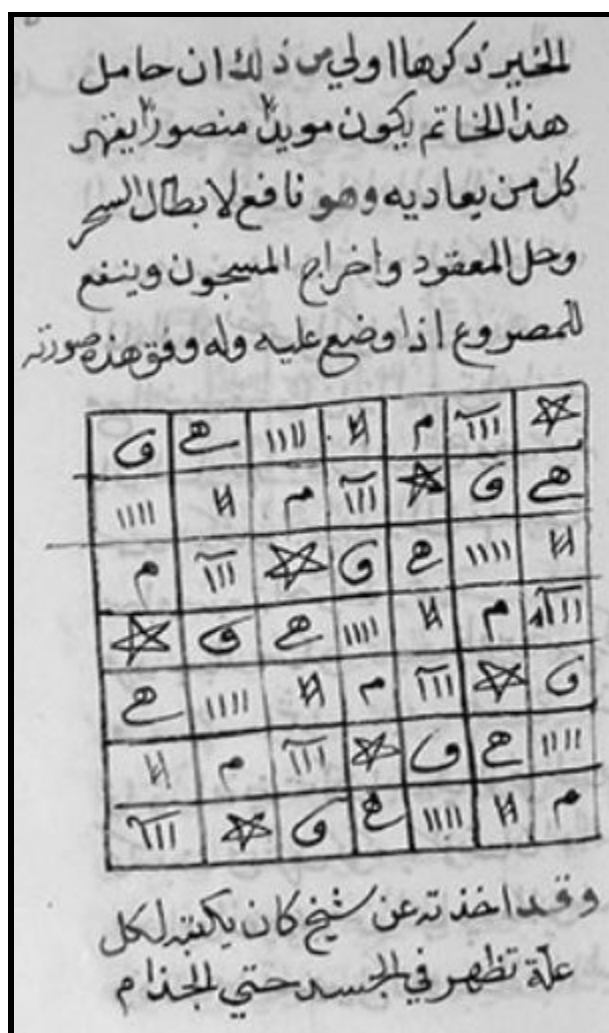 الخير ذكرها اولي من ذلك ان حامل
هذا الخاتم يكون مويدا منصورا يقهر
كل من يعاديه وهو نافع لابطال السحر
وحل المعقود واخراج المسجون وينفع
للمصروع اذا وضع عليه وله وفق هذه صورته
☆ ااا م # اااا ھ و
ھ و ☆ ااا م # اااا
# اااا ھ و ☆ ااا م
ااا م # اااا ھ و ☆
و ☆ ااا م # اااا ھ
اااا ھ و ☆ ااا م #
م # اااا ھ و ☆ ااا
وقد اخذته عن شيخ كان يكتبه لكل
علة تظهر في الجسد حتي الجذام